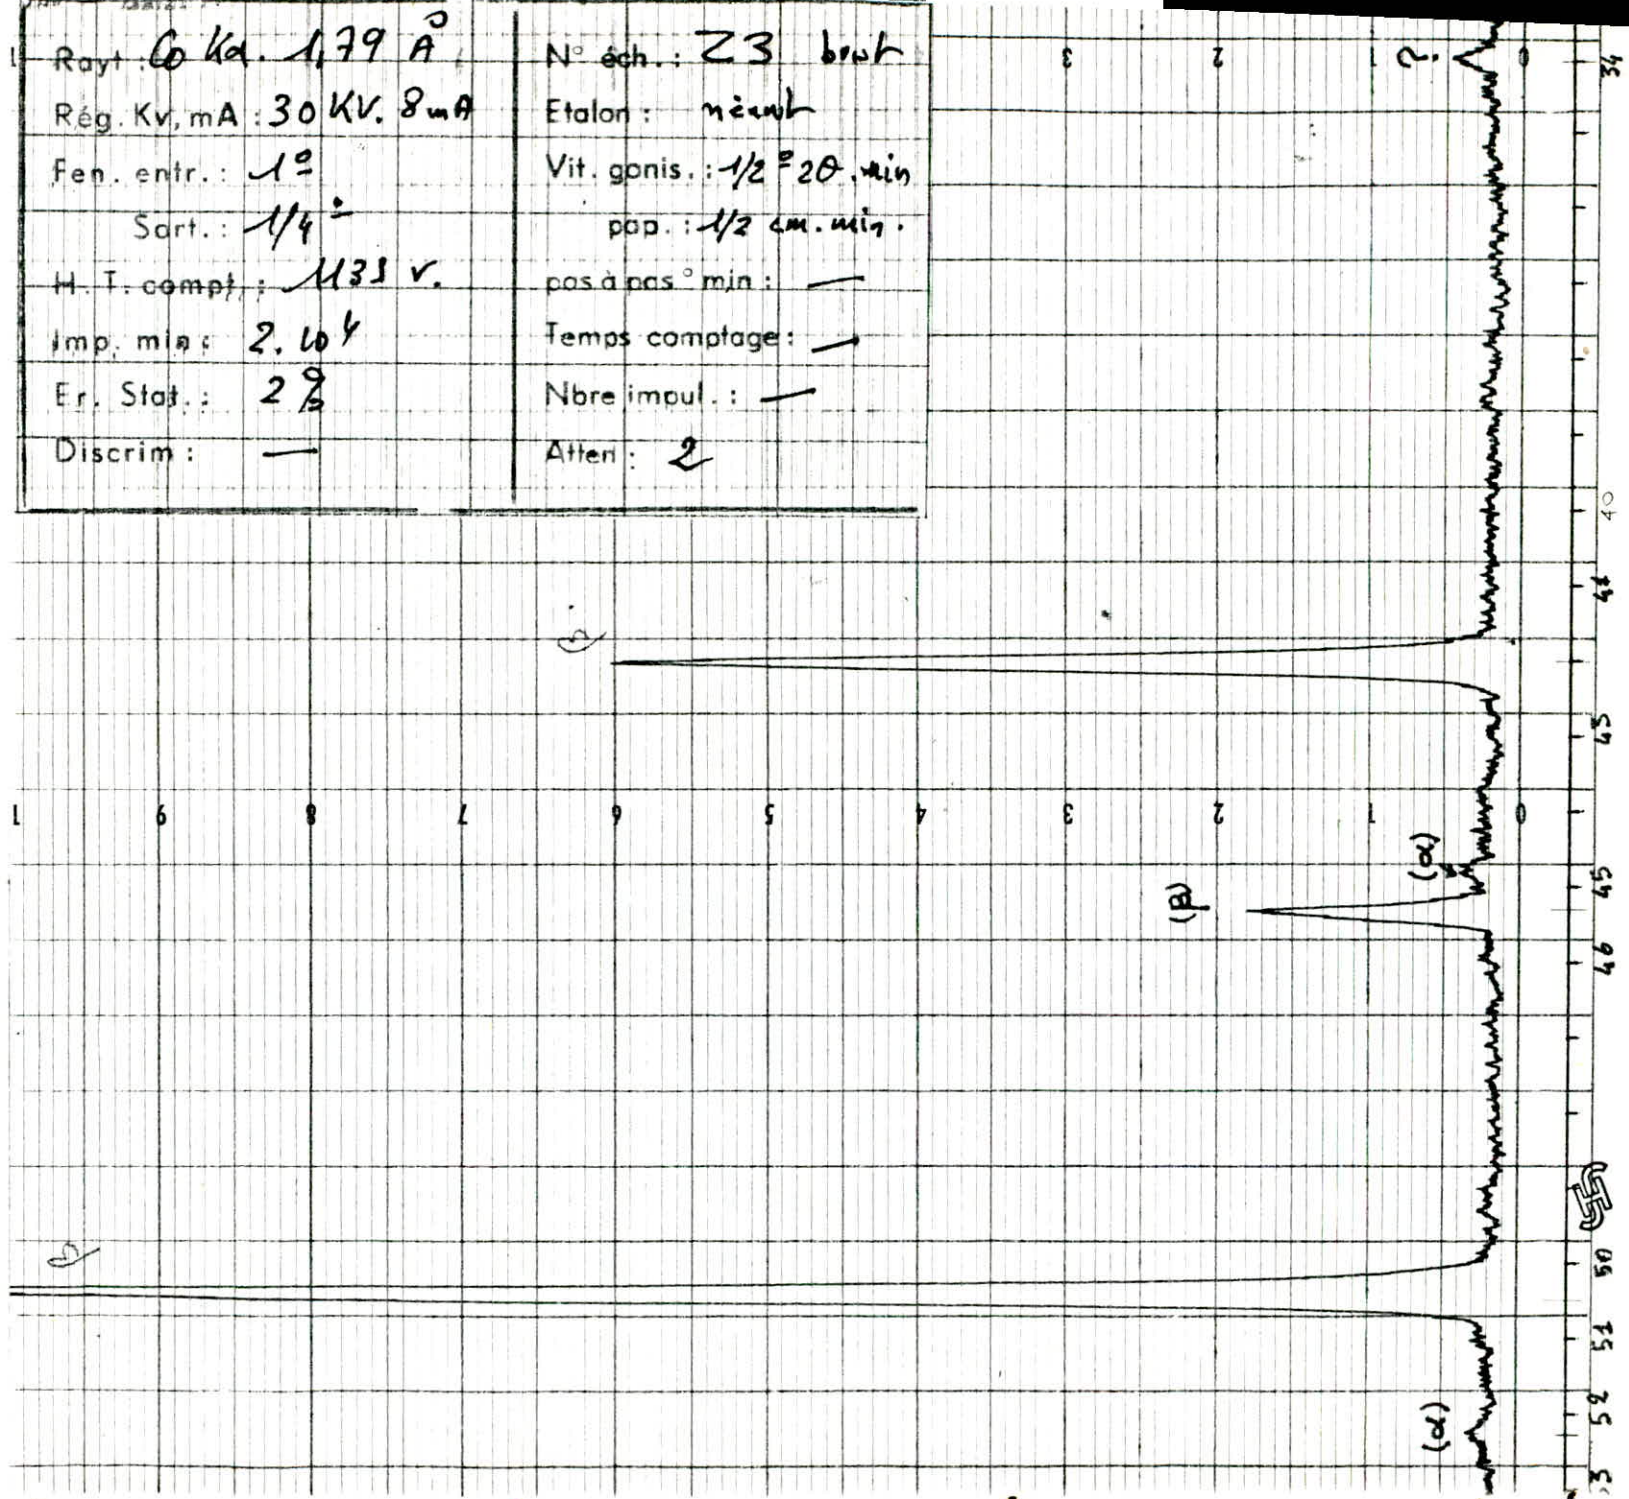 Rayt : Co Kα. 1,79 Å
Rég. Kv, mA : 30 KV. 8 mA
Fen. entr. : 1°
Sort. : 1/4°
H. T. compt. :
Imp. min : 2.10⁴
Er. Stat. : 2%
Discrim : —
N° éch. : Z3 brut
Etalon : néant
Vit. gonis. : 1/2° 2θ.min
pap. : 1/2 cm.min.
pas à pas ° min : —
Temps comptage : —
Nbre impul. : —
Atten : 2
3 2 ? 0 34
40
41
43
9 8 7 6 5 4 3 2 1 0
(α)
45
(β)
46
50
51
52
(α)